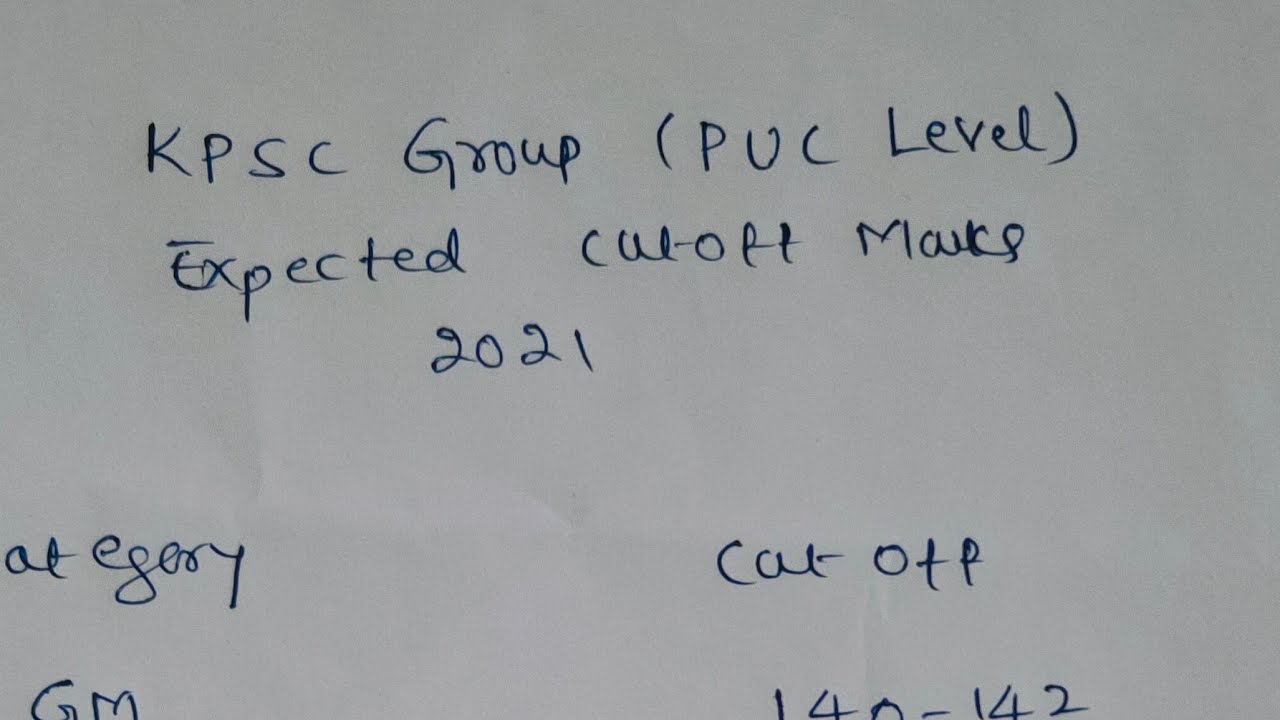 KPSC Group (PUC Level)
Expected Cut-off Marks
2021
ategory Cut off
GM 140-142